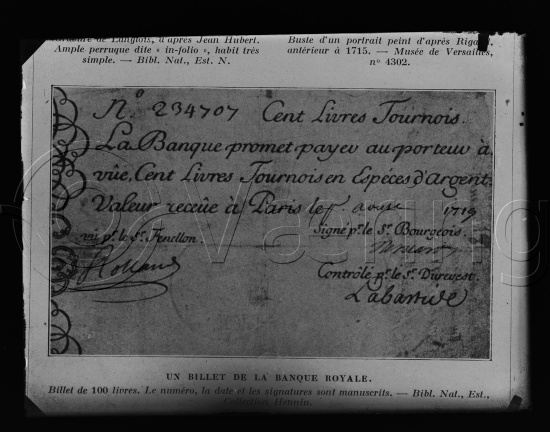 d'après Jean Hubert.
Ample perruque dite « in-folio », habit très
simple. — Bibl. Nat., Est. N.
Buste d'un portrait peint d'après Rigaud,
antérieur à 1715. — Musée de Versailles,
n° 4302.
N.o 234707 Cent Livres Tournois.
La Banque promet payer au porteur à
vüe, Cent Livres Tournois en Espéces d'Argent
Valeur receüe à Paris le 1719
vu p.r le S.r Fenellon. Signé p.r le S.r Bourgeois.
Contrôlé p.r le S.r Durevest.
UN BILLET DE LA BANQUE ROYALE.
Billet de 100 livres. Le numéro, la date et les signatures sont manuscrits. — Bibl. Nat., Est.,
Collection Hennin.